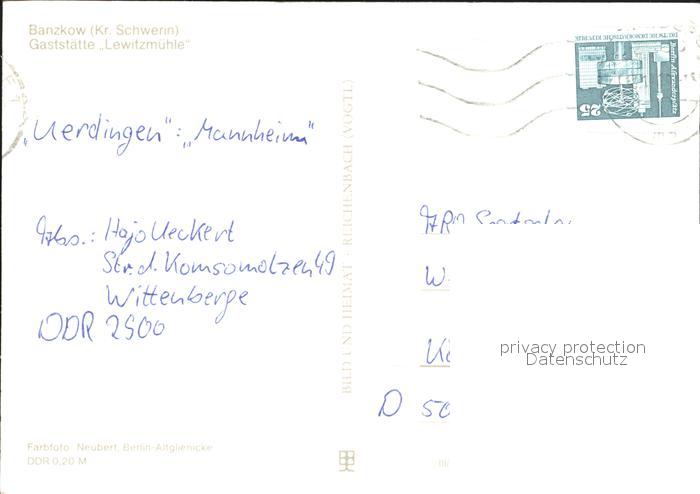 Banzkow (Kr. Schwerin)
Gaststätte „Lewitzmühle"
DEUTSCHE DEMOKRATISCHE REPUBLIK
Berlin, Alexanderplatz
25
„Uerdingen": „Mannheim"
Abs.: Hajo Ueckert
Str. d. Komsomolzen 49
Wittenberge
DDR 2900
BILD UND HEIMAT · REICHENBACH (VOGTL)
D 50
privacy protection
Datenschutz
Farbfoto: Neubert, Berlin-Altglienicke
DDR 0,20 M